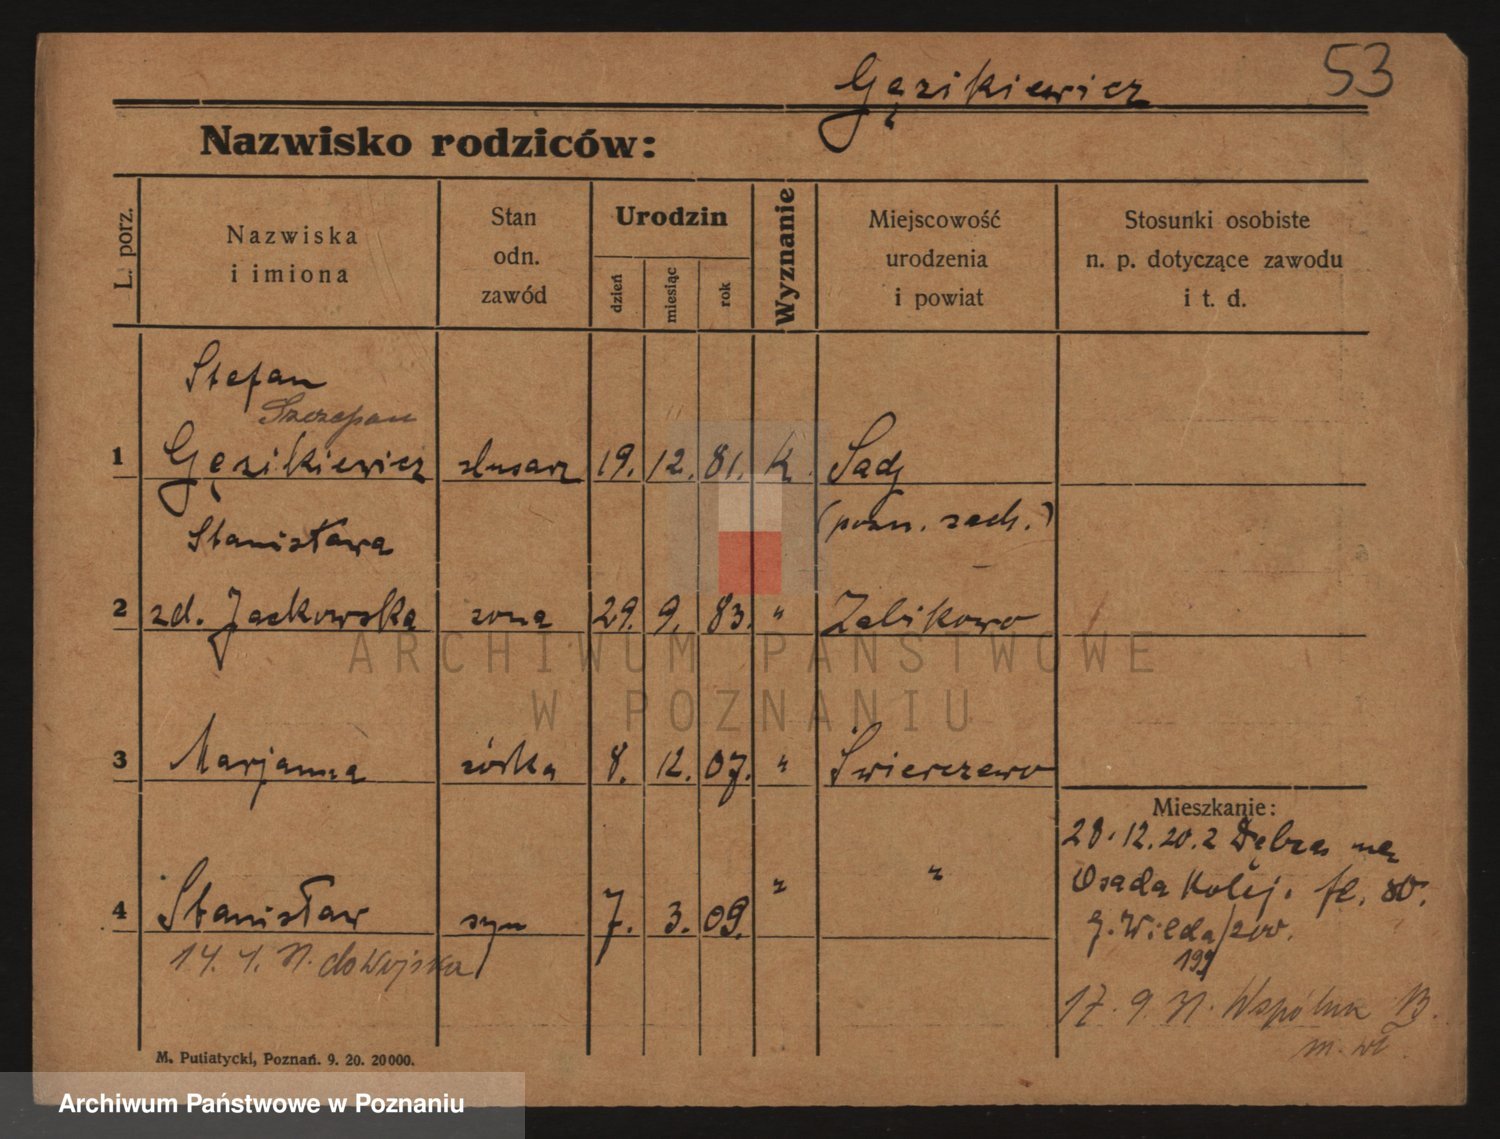 53
Gęzikiewicz
Nazwisko rodziców:
L. porz.
Nazwiska
i imiona
Stan
odn.
zawód
Urodzin
dzień
miesiąc
rok
Wyznanie
Miejscowość
urodzenia
i powiat
Stosunki osobiste
n. p. dotyczące zawodu
i t. d.
Stefan
Szczepan
1 Gęzikiewicz ślusarz 19. 12. 81. K. Sady
(pozn. zach.)
Stanisława
2 zd. Jackowska żona 29. 9. 83. " Żabikowo
3 Marjanna córka 8. 12. 07. " Świerczewo
Mieszkanie:
28.12.20. z
Osada Kolej.
4 Stanisław syn 7. 3. 09. " "
G. Wilda
14. 1. 31. do wojska
17. 9. 31. Wspólna 13.
m. wł.
M. Putiatycki, Poznań. 9. 20. 20000.
ARCHIWUM PAŃSTWOWE
W POZNANIU
Archiwum Państwowe w Poznaniu